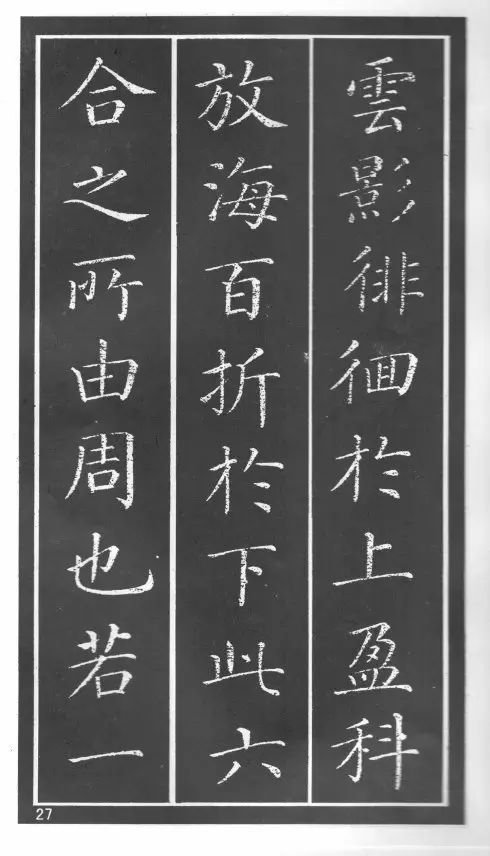 雲影徘徊於上盈科
放海百折於下此六
合之所由周也若一
27